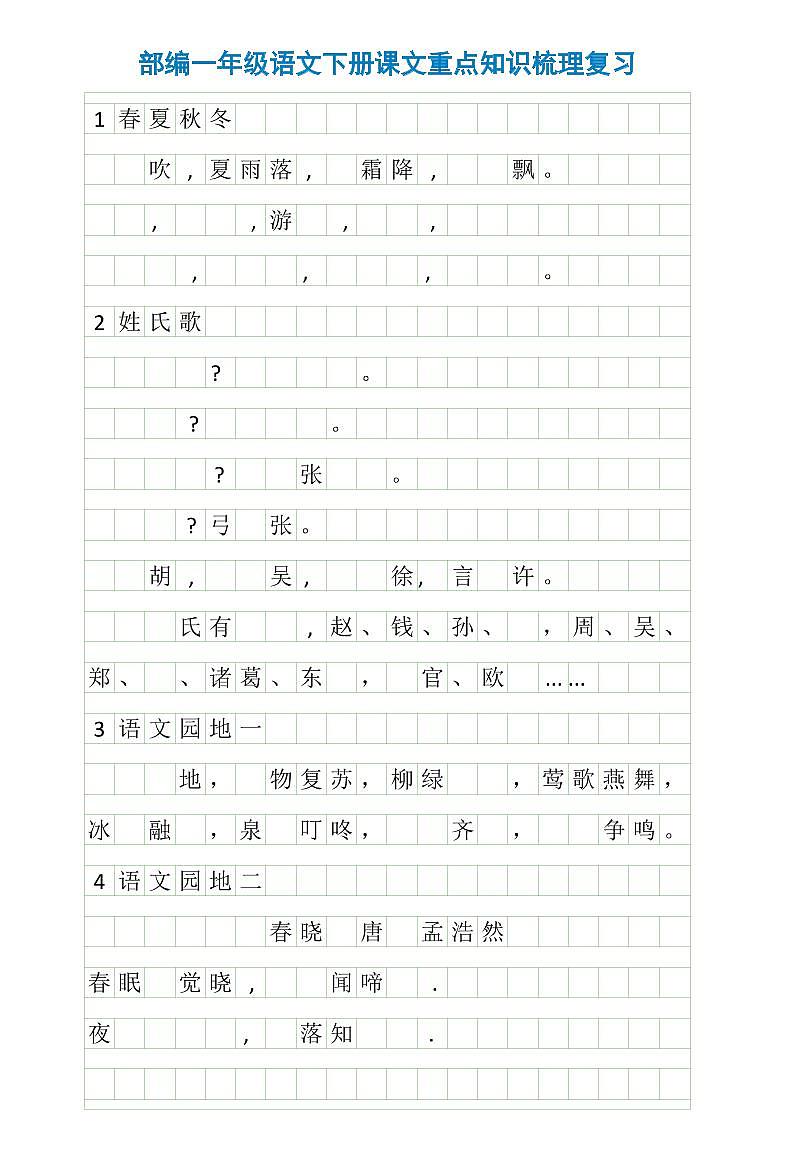 部编一年级语文下册课文重点知识梳理复习
1 春夏秋冬
吹，夏雨落， 霜降， 飘。
， ，游 ， ，
， ， ， 。
2 姓氏歌
？ 。
？ 。
？ 张 。
？弓 张。
胡， 吴， 徐，言 许。
氏有 ，赵、钱、孙、 ，周、吴、
郑、 、诸葛、东 ， 官、欧 ……
3 语文园地一
地， 物复苏，柳绿 ，莺歌燕舞，
冰 融 ，泉 叮咚， 齐 ， 争鸣。
4 语文园地二
春晓 唐 孟浩然
春眠 觉晓， 闻啼 .
夜 ， 落知 .